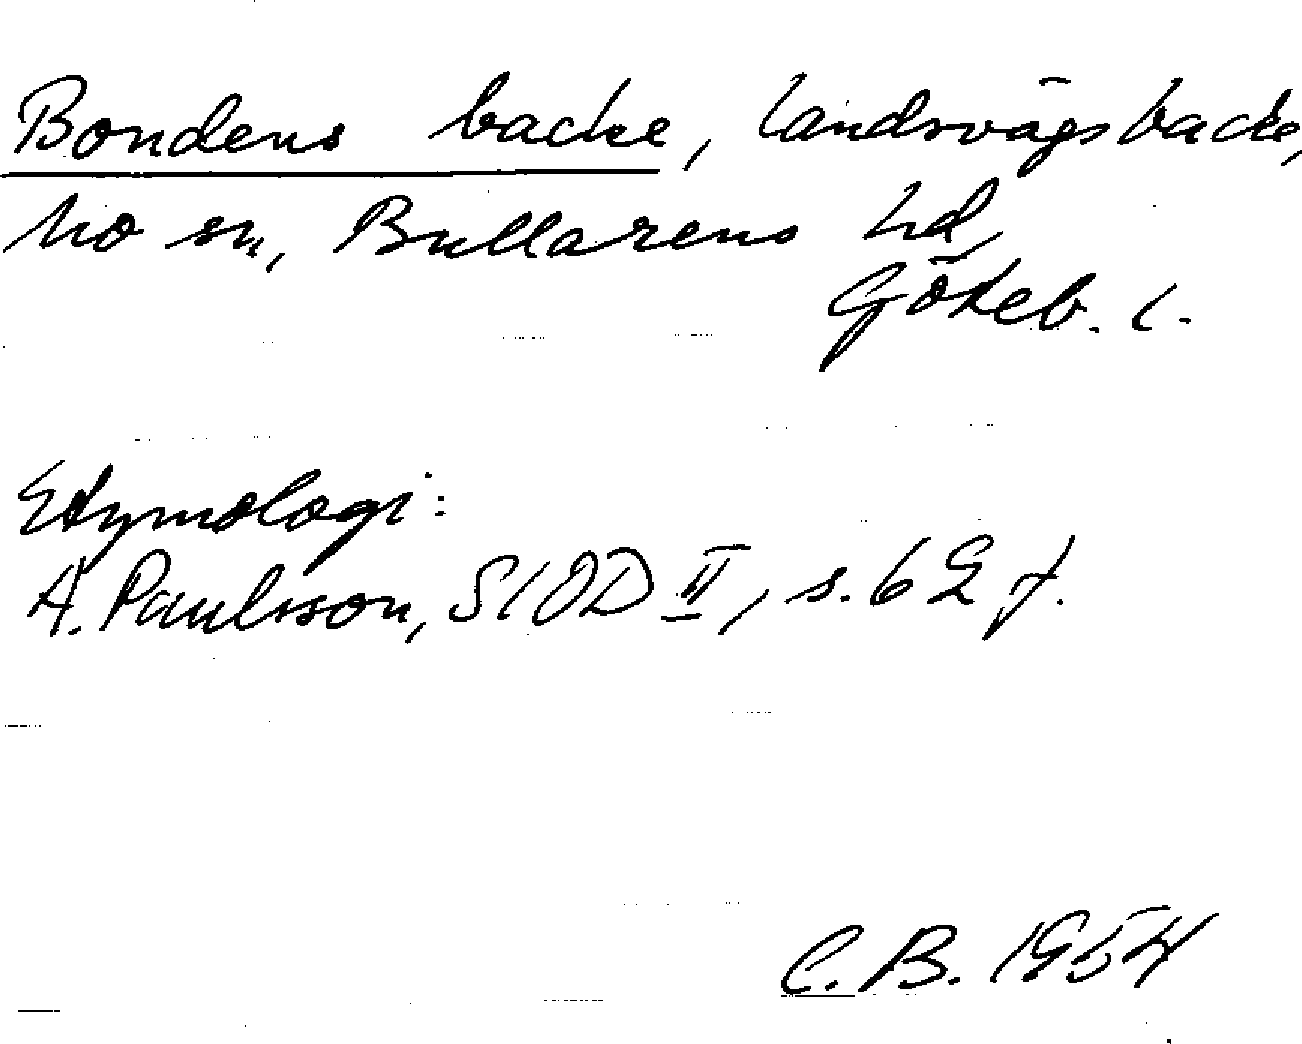 Bondens backe, landsvägsbacke,
Mo sn, Bullarens hd,
Göteb. l.
Etymologi:
A. Paulsson, SIOD II, s. 62 f.
C. B. 1954